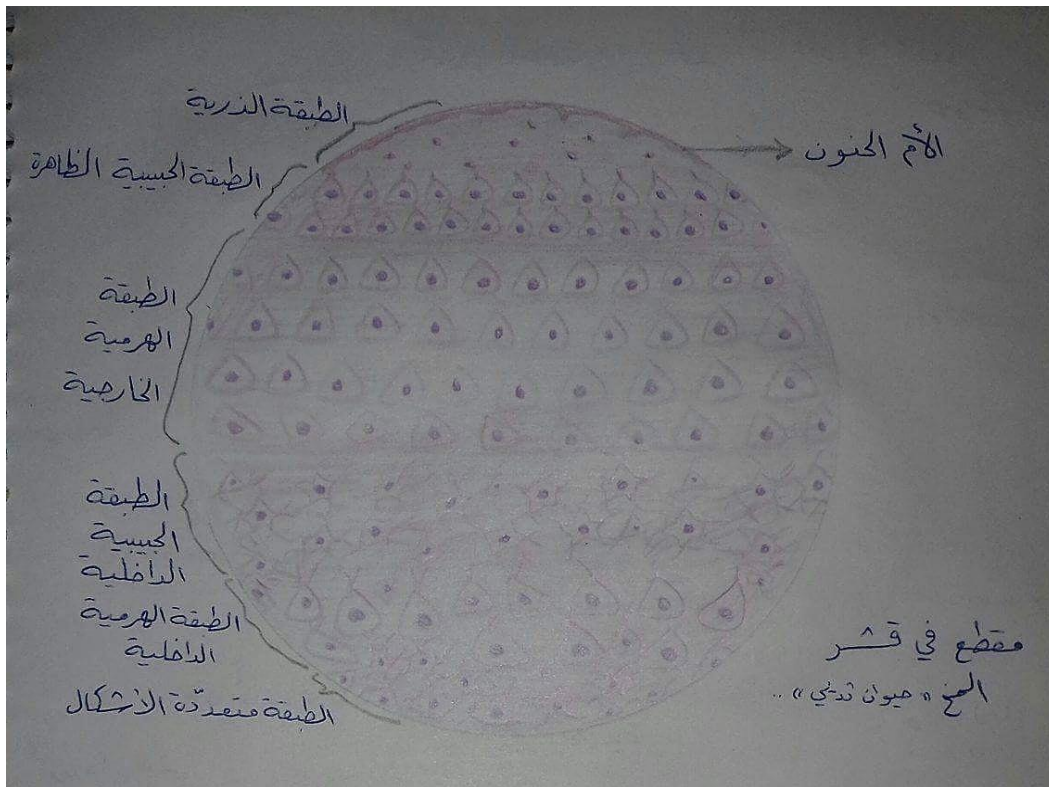 الطبقة الذرية
الأم الحنون
الطبقة الحبيبية الظاهرة
الطبقة
الهرمية
الخارجية
الطبقة
الحبيبية
الداخلية
الطبقة الهرمية
الداخلية
الطبقة متعددّة الأشكال
مقطع في قشر
المخ "حيوان ثديي" ..